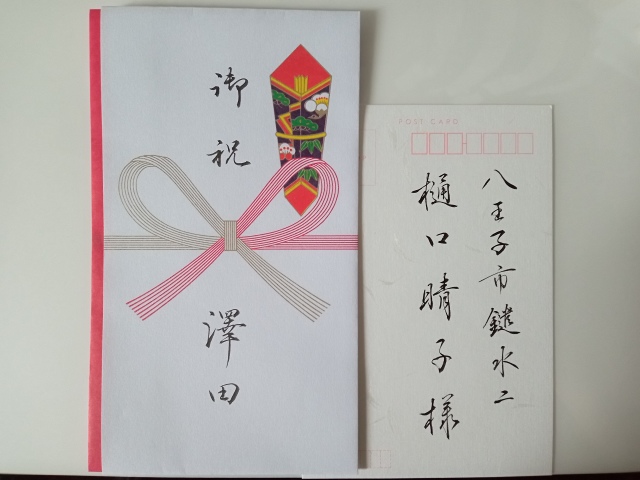 御祝
澤田
POST CARD
八王子市鑓水二
樋口晴子様